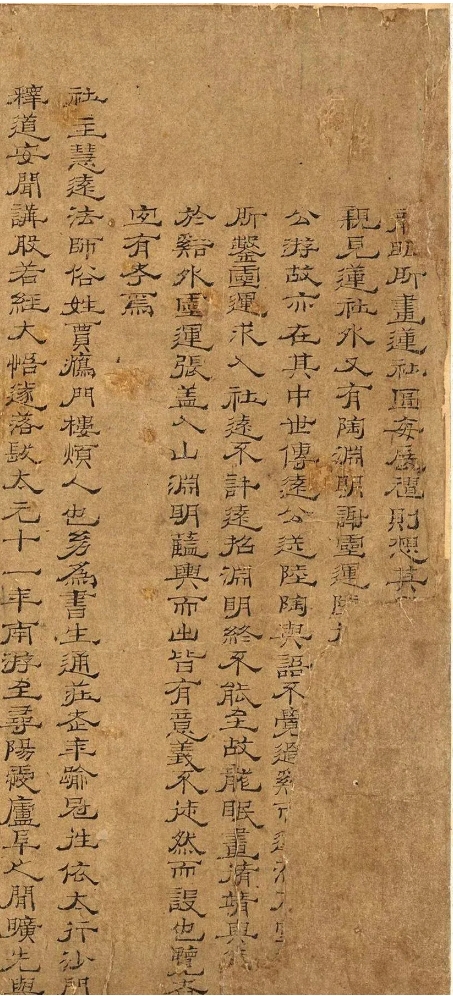 所畫蓮社圖每展禮則想其
親見蓮社外又有陶淵明謝靈運
公游故亦在其中世傳遠公送陸陶與語不覺過谿
所鑒靈運求入社遠不許遠招淵明終不能至故龍眠畫脩靖與
於谿外靈運張盖入山淵明籃輿而出皆有意義不徒然而設也覽者
宜有考焉
社主慧遠法師俗姓賈鴈門樓煩人也幼為書生通莊老年踰冠往依太行沙門
釋道安聞講般若經大悟遂落髮太元十一年南游至尋陽愛廬阜之閒曠先與